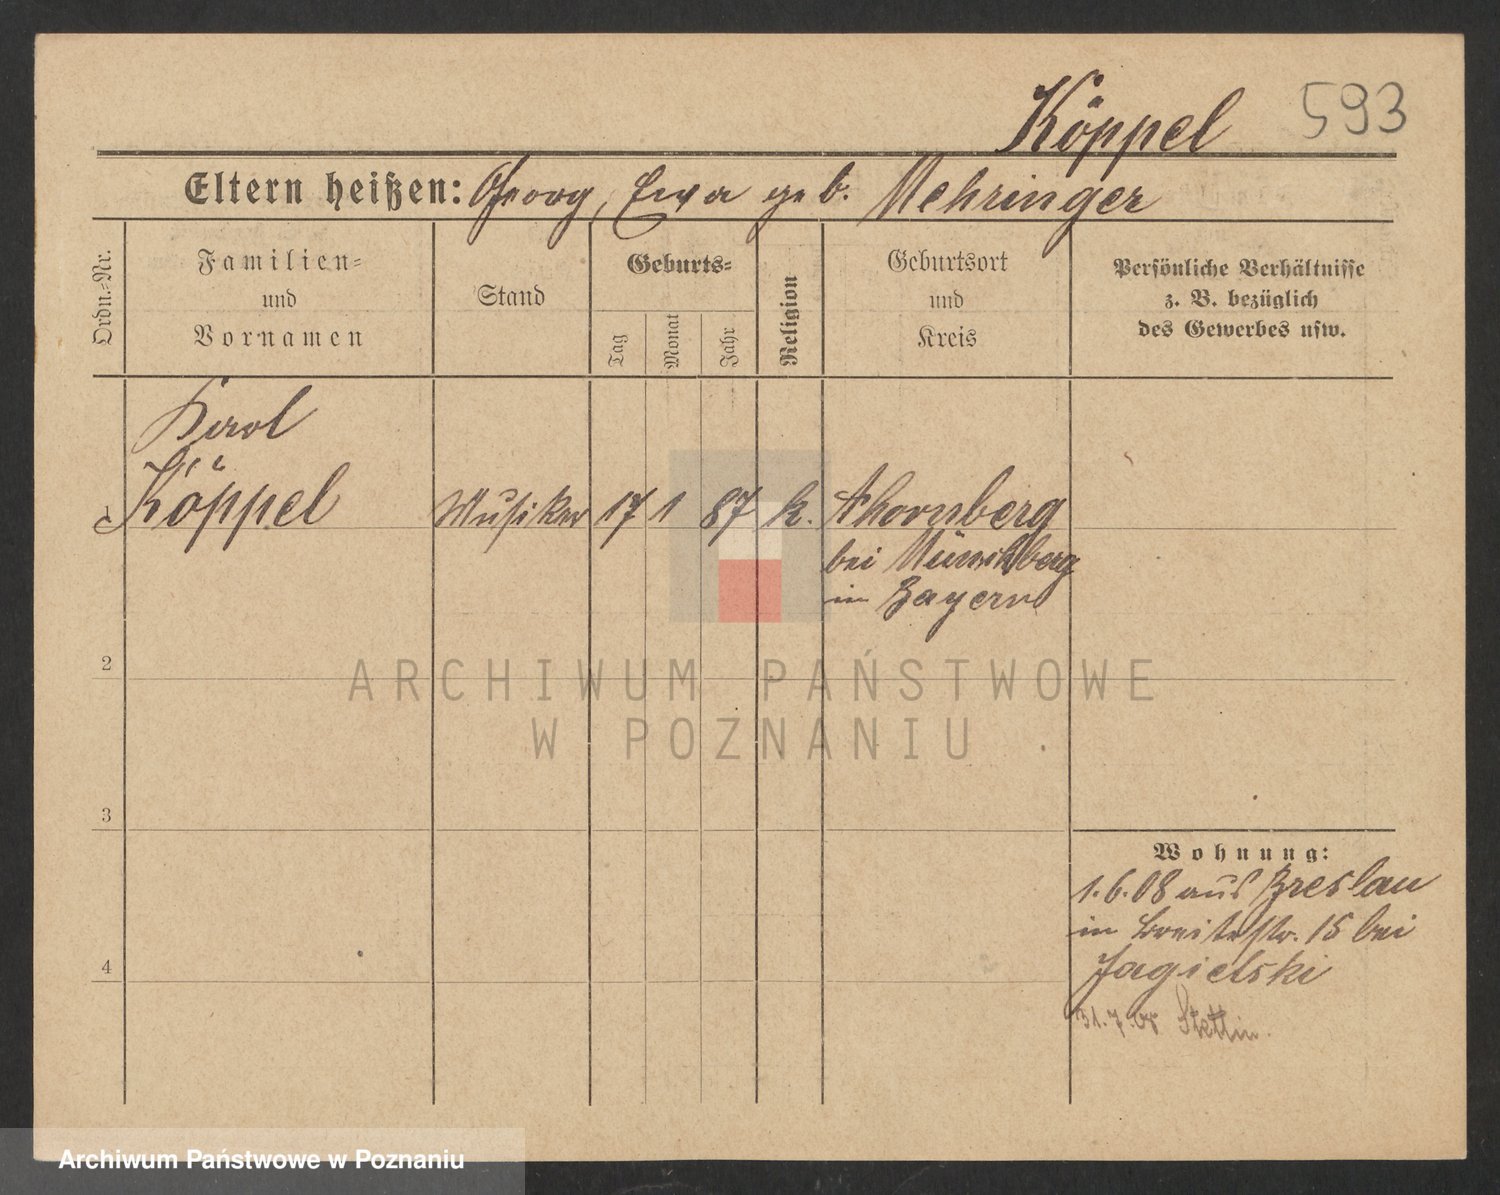 Köppel 593
Eltern heißen: Georg, Ewa geb. Mehringer
Ordn.=Nr.
Familien=
und
Vornamen
Stand
Geburts=
Tag
Monat
Jahr
Religion
Geburtsort
und
Kreis
Persönliche Verhältnisse
z. B. bezüglich
des Gewerbes usw.
Karol
1 Köppel Musiker 17 1 87 k. Ahornberg
bei Münchberg
in Bayern
2
3
4
Wohnung:
1.6.08 aus Breslau
in Breitestr. 15 bei
Jagielski
31.7.08 Stettin.
ARCHIWUM PAŃSTWOWE
W POZNANIU
Archiwum Państwowe w Poznaniu